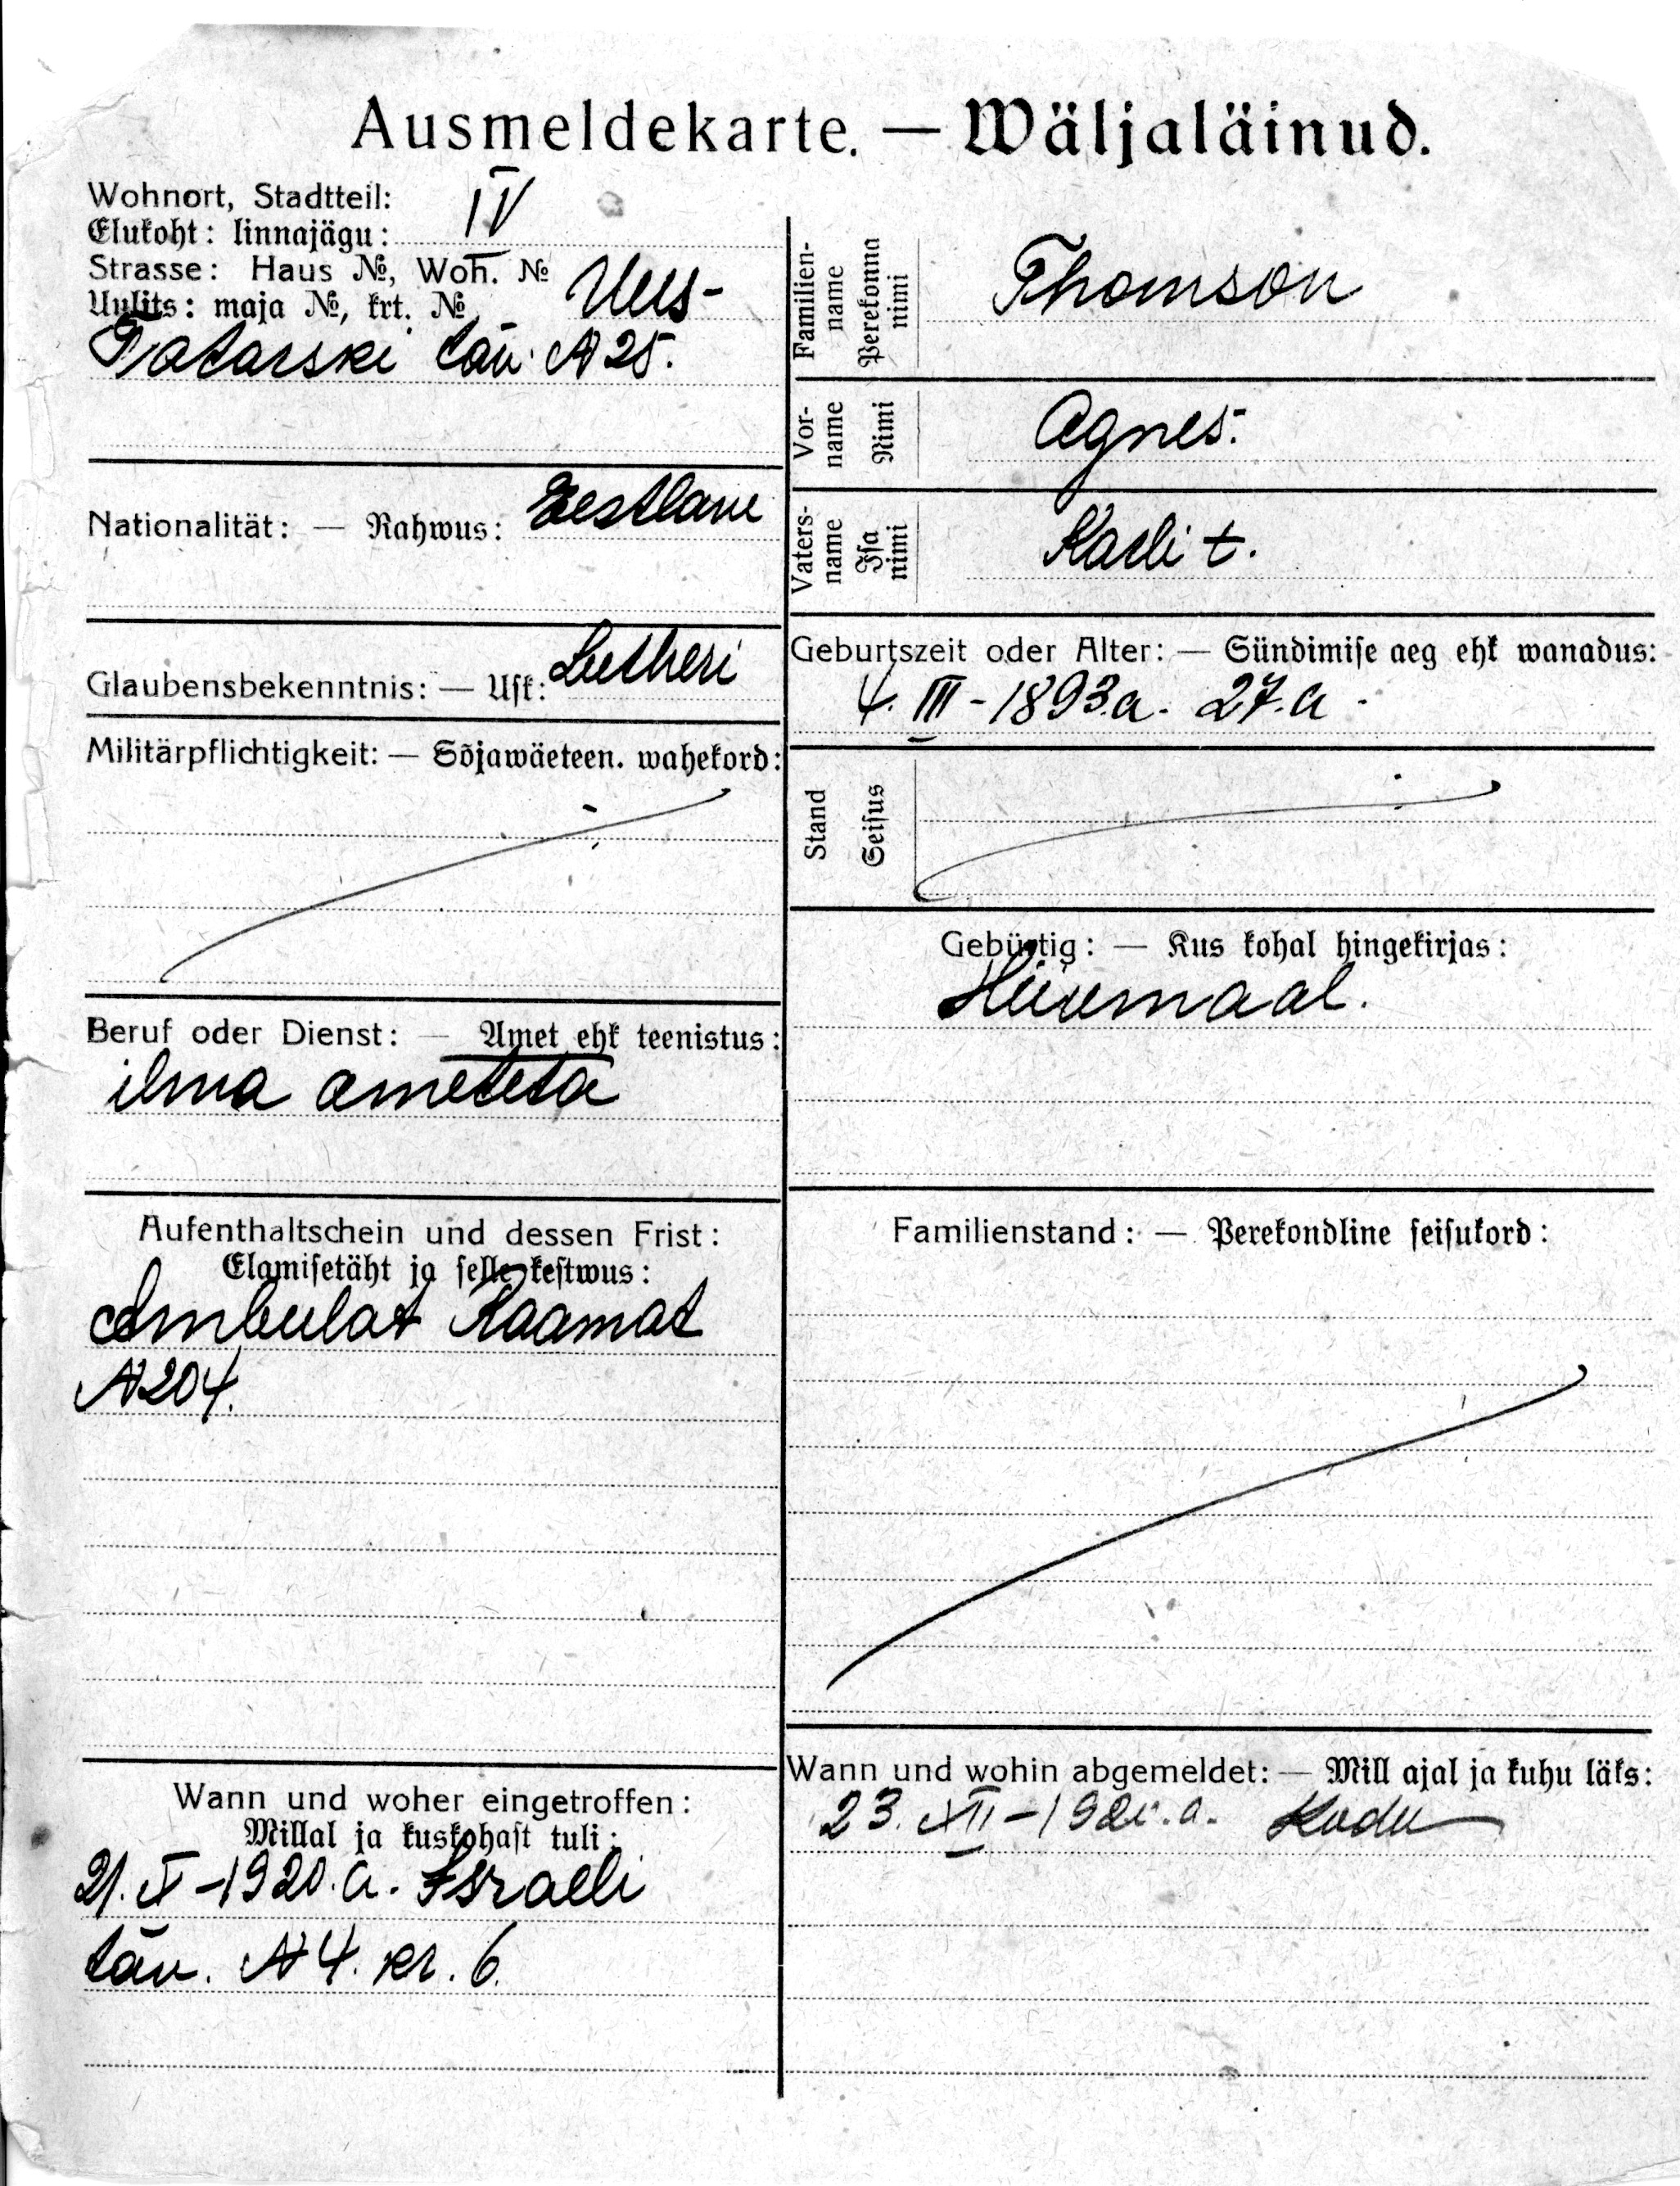 Ausmeldekarte. — Wäljaläinud.
Wohnort, Stadtteil:
Elukoht: linnajägu: IV
Strasse: Haus №, Woh. №
Uulits: maja №, krt. № Uus-
Tatarski tän. № 25.
Nationalität: — Rahwus: Eestlane
Glaubensbekenntnis: — Usk: Lutheri
Militärpflichtigkeit: — Sõjawäeteen. wahekord:
Beruf oder Dienst: — Amet ehk teenistus:
ilma ametita
Aufenthaltschein und dessen Frist:
Elamisetäht ja selle kestwus:
Ambulat Raamat
№ 204.
Wann und woher eingetroffen:
Millal ja kuskohast tuli:
21. X - 1920. a. Israeli
tän. № 4. kr. 6.
Familien-
name
Perekonna
nimi
Thomson
Vor-
name
Nimi
Agnes.
Vaters-
name
Isa
nimi
Karli t.
Geburtszeit oder Alter: — Sündimise aeg ehk wanadus:
4. III - 1893.a. 27.a.
Stand
Seisus
Gebürtig: — Kus kohal hingekirjas:
Hiiumaal.
Familienstand: — Perekondline seisukord:
Wann und wohin abgemeldet: — Mill ajal ja kuhu läks:
23. XII - a. Kodu